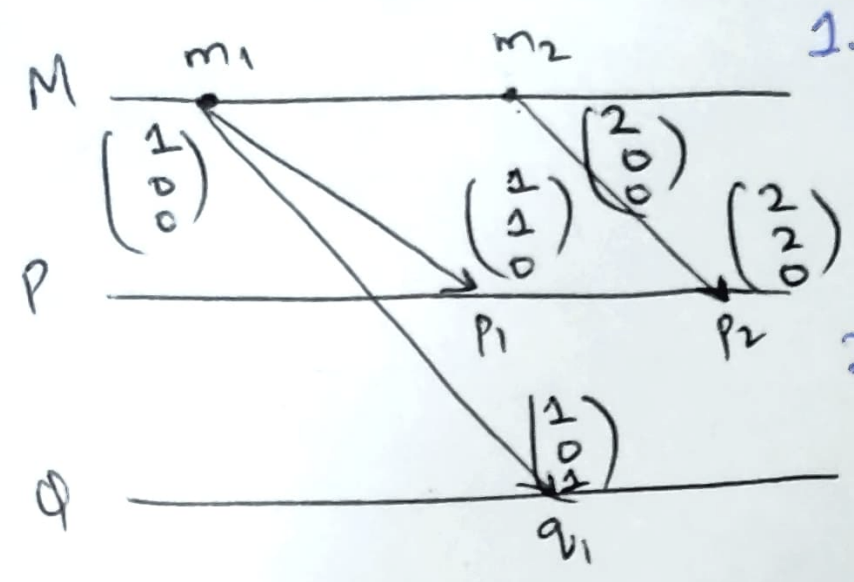 m1 m2 1.
M
(1 0 0) (2 0 0)
(1 1 0) (2 2 0)
P
p1 p2
(1 0 1)
Q
q1